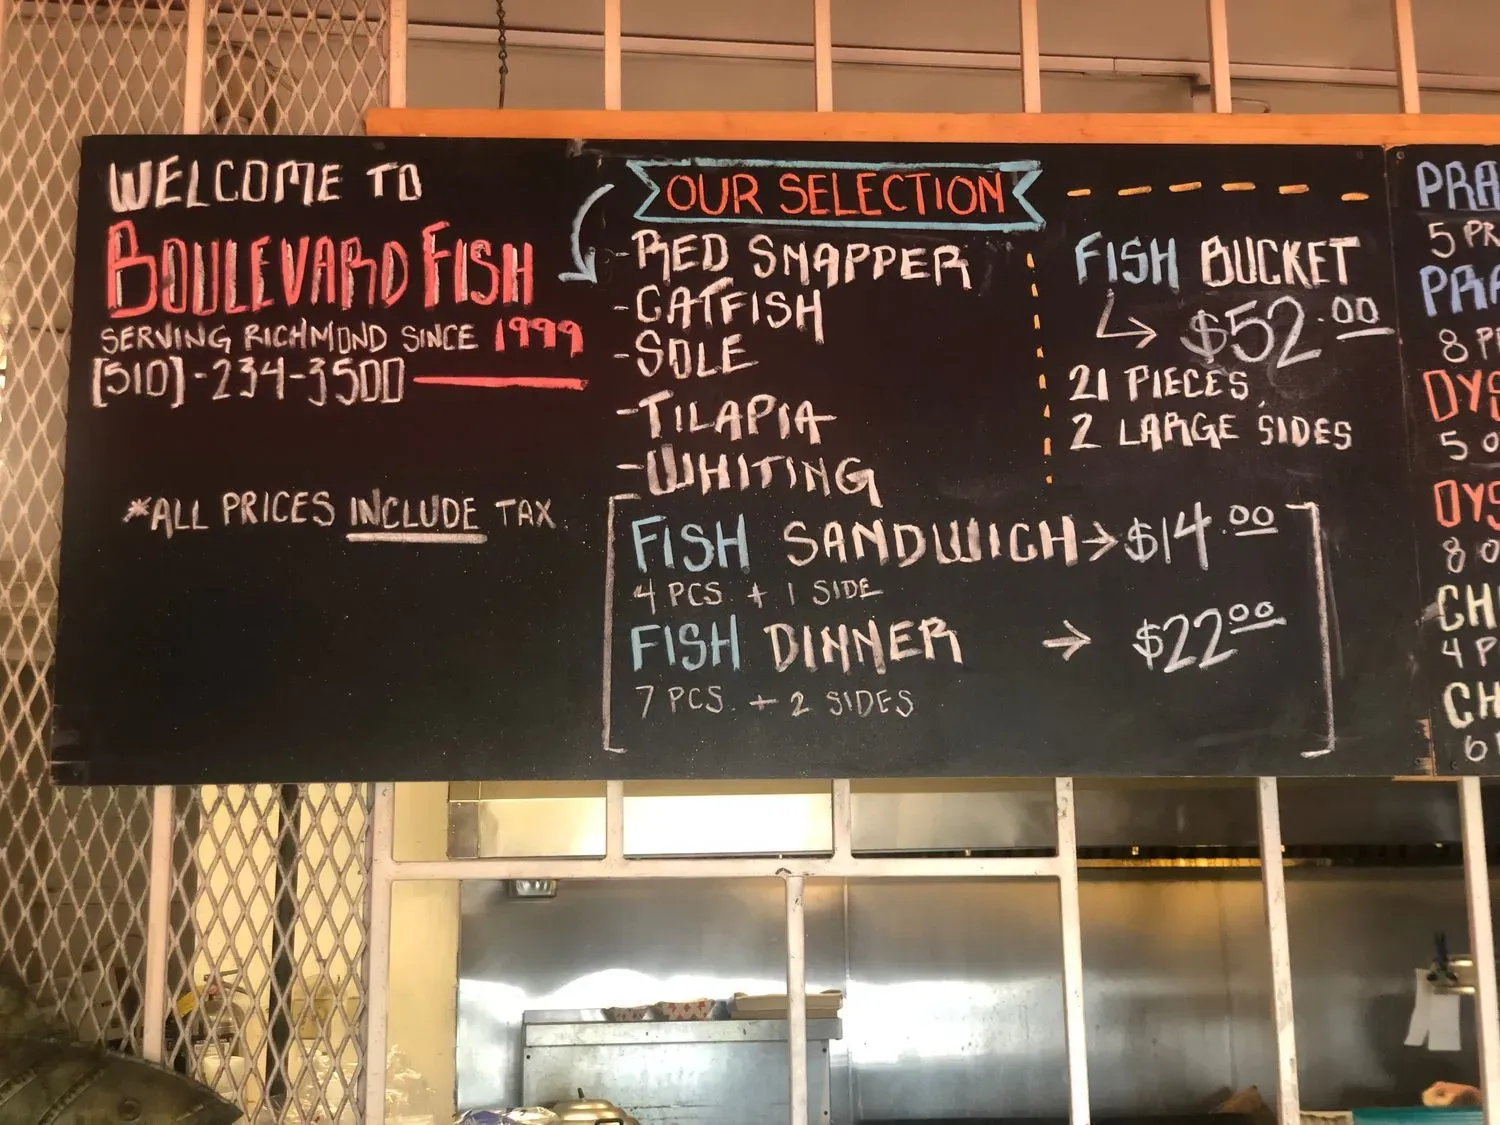 WELCOME TO
BOULEVARD FISH
SERVING RICHMOND SINCE 1999
[510]-234-3500
*ALL PRICES INCLUDE TAX
OUR SELECTION
-RED SNAPPER
-CATFISH
-SOLE
-TILAPIA
-WHITING
FISH BUCKET
$52.00
21 PIECES,
2 LARGE SIDES
FISH SANDWICH → $14.00
4 PCS + 1 SIDE
FISH DINNER → $22.00
7 PCS. + 2 SIDES
PRA
5 PR
PRA
8 P
OYS
5 O
OYS
8 O
CH
4 P
CH
6